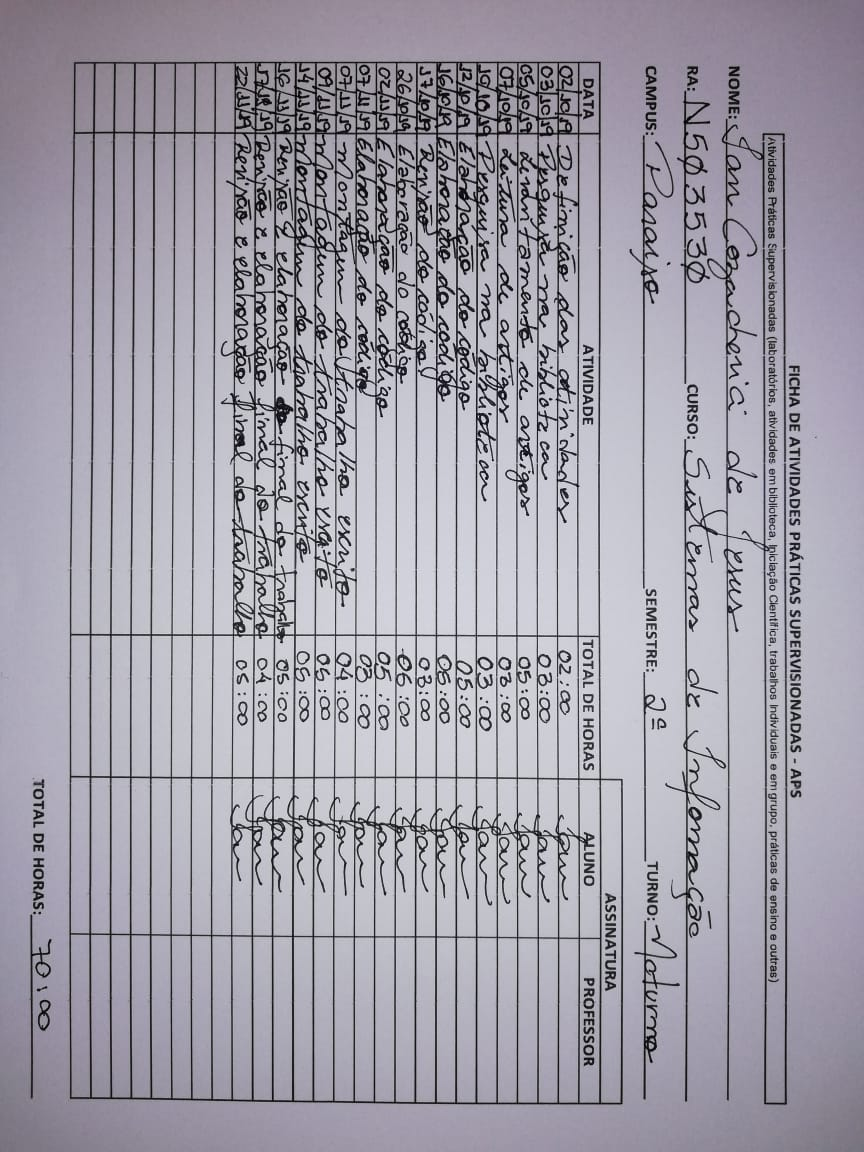 FICHA DE ATIVIDADES PRÁTICAS SUPERVISIONADAS - APS
Atividades Práticas Supervisionadas (laboratórios, atividades em biblioteca, Iniciação Científica, trabalhos Individuais e em grupo, práticas de ensino e outras)
NOME: Ian de Jesus
RA: N503530 CURSO: Sistemas de Informação
CAMPUS: Paraiso SEMESTRE: 2º TURNO: Noturno
ASSINATURA
DATA ATIVIDADE TOTAL DE HORAS ALUNO PROFESSOR
02/10/19 Definição das atividades 02:00 Ian
03/10/19 Pesquisa na biblioteca 03:00 Ian
05/10/19 Levantamento de artigos 05:00 Ian
07/10/19 Leitura de artigos 03:00 Ian
10/10/19 Pesquisa na biblioteca 03:00 Ian
12/10/19 Elaboração do código 05:00 Ian
16/10/19 Elaboração do código 06:00 Ian
17/10/19 Revisão do código 03:00 Ian
26/10/19 Elaboração do código 06:00 Ian
02/11/19 Elaboração do código 05:00 Ian
07/11/19 Elaboração do código 03:00 Ian
07/11/19 Montagem do trabalho escrito 04:00 Ian
09/11/19 Montagem do trabalho escrito 06:00 Ian
14/11/19 Montagem do trabalho escrito 05:00 Ian
16/11/19 Revisão e elaboração final do trabalho 05:00 Ian
17/11/19 Revisão e elaboração final do trabalho 04:00 Ian
22/11/19 Revisão e elaboração final do trabalho 05:00 Ian
TOTAL DE HORAS: 70:00